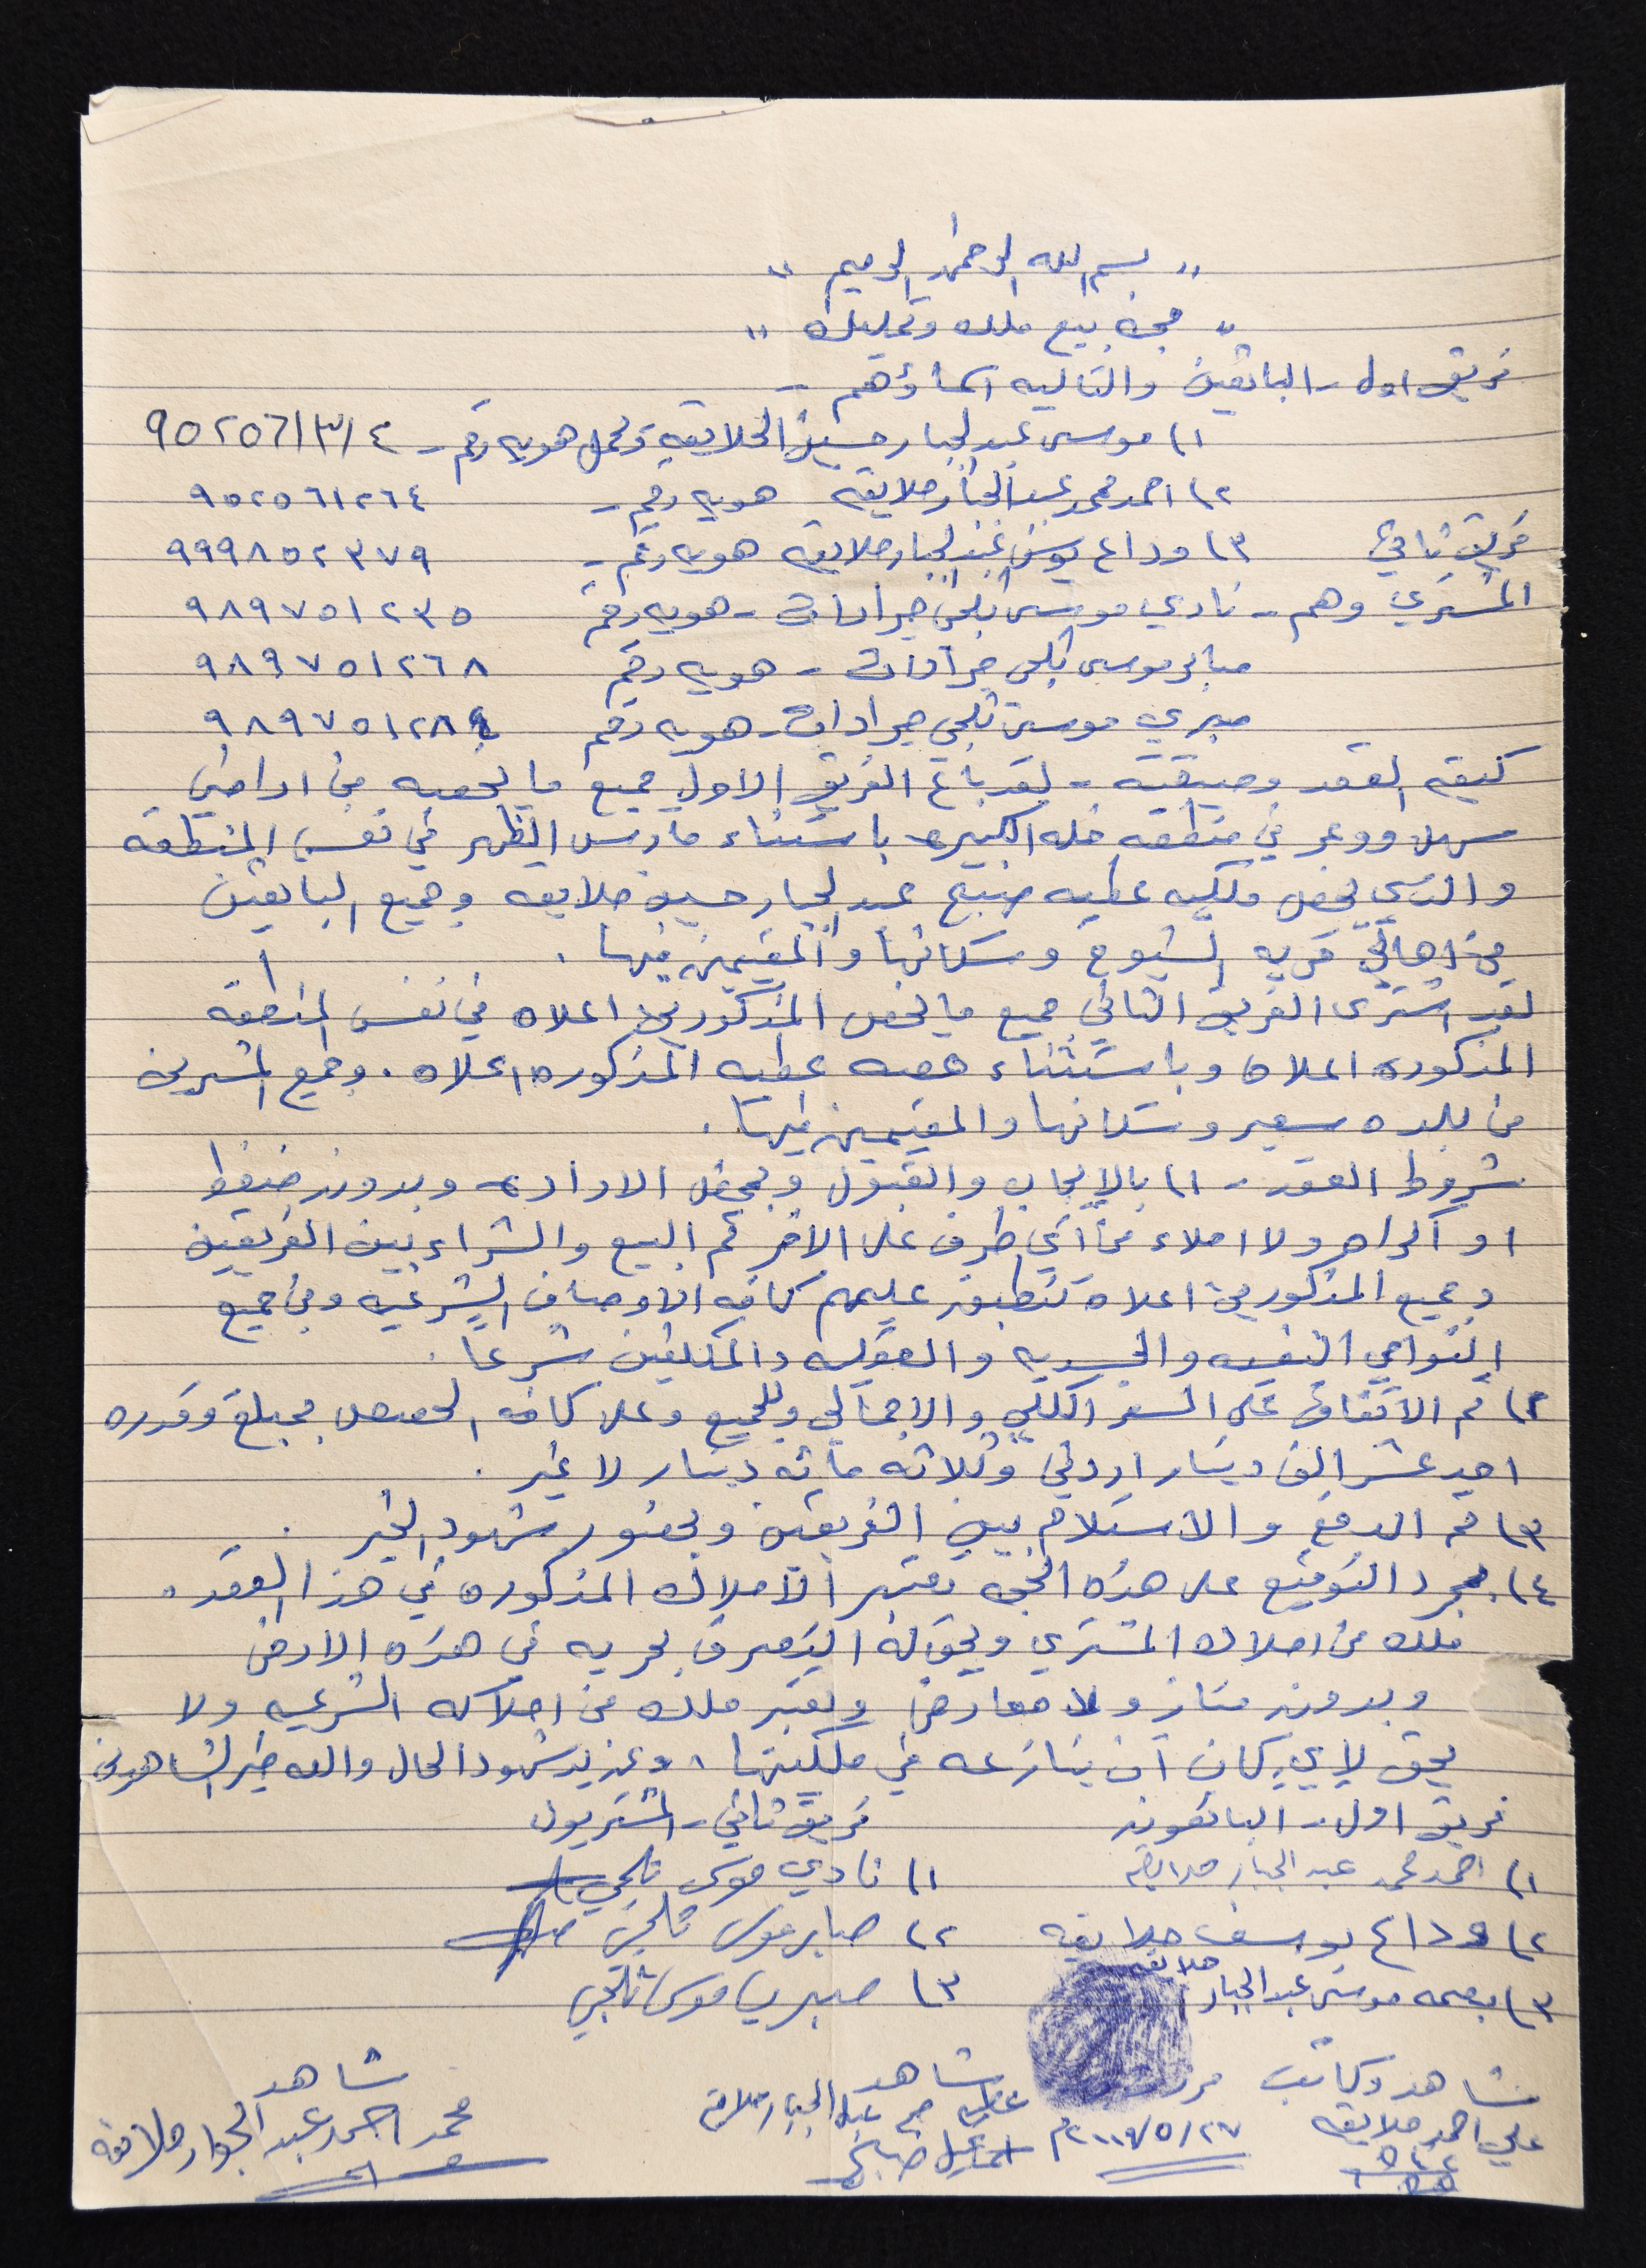 " بسم الله الرحمن الرحيم "
" حجة بيع ملك وتمليك "
فريق اول - البائعين والتاليه اسماؤهم -
١) موسى عبد الجبار حسين الحلايقه وتحمل هويه رقم - ٩٥٢٥٦١٣١٤
٢) احمد محمد عبد الجبار حلايقه هويه رقم - ٩٥٢٥٦١٢٦٤
فريق ثاني ٣) وداع يوسف عبد الجبار حلايقه هويه رقم - ٩٩٩٨٥٢٣٧٩
المشتري وهم - نادي موسى ثلجي جرادات - هويه رقم ٩٨٩٧٥١٢٣٥
صابر موسى ثلجي جرادات - هويه رقم ٩٨٩٧٥١٢٦٨
صبري موسى ثلجي جرادات - هويه رقم ٩٨٩٧٥١٢٨٤
كيفيه العقد وحيثيته - لقد باع الفريق الاول جميع ما يخصه من اراضي
سهل ووعر في منطقه خله الكبيره باستثناء مارس الظهر في نفس المنطقه
والذي يخص ملكيه عطيه صبيح عبد الجبار حسين حلايقه وجميع البائعين
من اهالي قريه الشيوخ وسكانها والمقيمين فيها .
لقد اشترى الفريق الثاني جميع ما يخص المذكورين اعلاه في نفس المنطقه
المذكوره اعلاه وباستثناء حصه عطيه المذكوره اعلاه . وجميع المشترين
من بلده سعير وسكانها والمقيمين فيها .
شروط العقد - ١) بالايجاب والقبول وبمحض الاراده وبدون ضغط
او اكراه ولا املاء من اي طرف على الاخر تم البيع والشراء بين الفريقين
وجميع المذكورين اعلاه تنطبق عليهم كافه الاوصاف الشرعيه ومن جميع
النواحي النفسيه والجسديه والعقليه والمكلفين شرعا .
٢) تم الاتفاق على السعر الكلي والاجمالي وللجميع وعلى كافه الحصص بمبلغ وقدره
احد عشر الف دينار اردني وثلاثه مائه دينار لا غير .
٣) تم الدفع والاستلام بين الفريقين وبحضور شهود الخير .
٤) بمجرد التوقيع على هذه الحجه تعتبر الاملاك المذكوره في هذا العقد .
ملك من املاك المشتري ويحق له التصرف بحريه في هذه الارض
وبدون منازع ولا معارض وتعتبر ملك من املاكه الشرعيه ولا
يحق لاي كان ان ينازعه في ملكيتها . وعند شهود الحال والله خير الشاهدين
فريق اول - البائعون فريق ثاني - المشتريون
١) احمد محمد عبد الجبار حلايقه ١) نادي موسى ثلجي
٢) وداع يوسف حلايقه ٢) صابر موسى ثلجي
٣) بصمه موسى عبد الجبار حلايقه ٣) صبري موسى ثلجي
شاهد وكاتب شاهد شاهد
علي احمد حلايقه ٢٠٠٩/٥/٢٧م عبد الجبار حلايقه محمد احمد عبد الجواد حلايقه